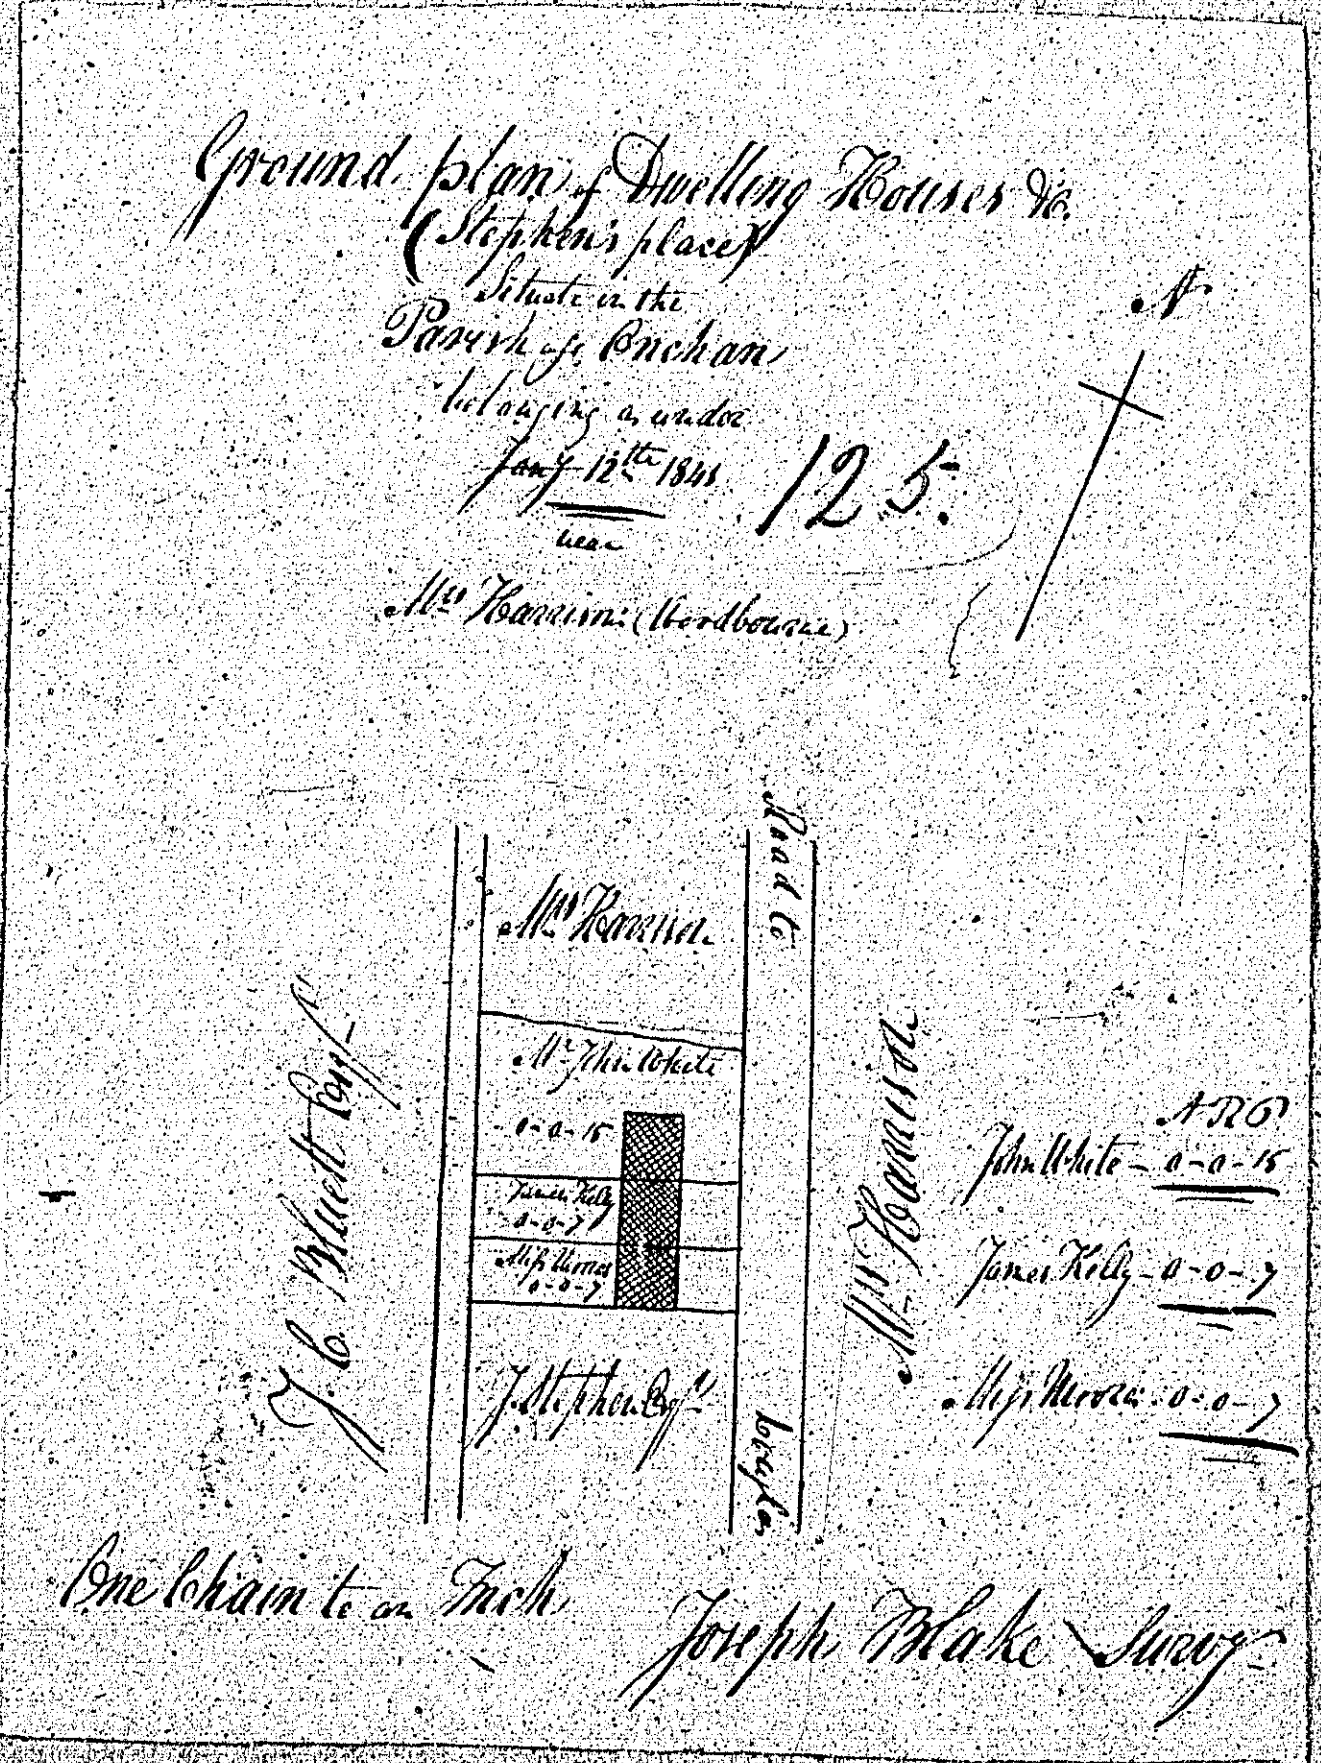 Ground plan of Dwelling Houses &c.
(Stephen's place)
Situate in the
Parish of Onchan
belonging as under
Jany 12th 1841
125.
near
Mrs Harrison: (Woodbourne)
N
Road to
Mrs Harrison
Mr John White
0-0-15
James Kelly
0-0-7
Miss Moore
0-0-7
J. Stephen Esqr
Douglas
J. C. Bluett Esqr
Mrs Harrison
A R P
John White - 0-0-15
James Kelly - 0-0-7
Miss Moore: 0-0-7
One Chain to an Inch
Joseph Blake Survyr